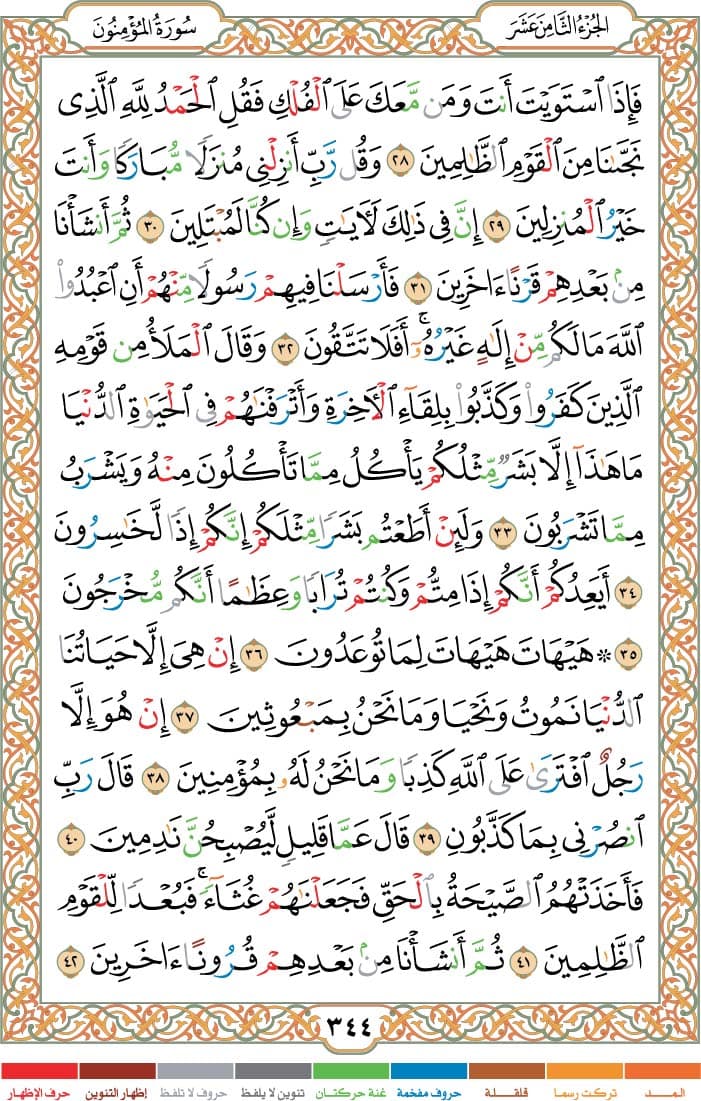 الجزء الثامن عشر
سورة المؤمنون
فَإِذَا ٱسْتَوَيْتَ أَنتَ وَمَن مَّعَكَ عَلَى ٱلْفُلْكِ فَقُلِ ٱلْحَمْدُ لِلَّهِ ٱلَّذِى
نَجَّىٰنَا مِنَ ٱلْقَوْمِ ٱلظَّٰلِمِينَ ٢٨ وَقُل رَّبِّ أَنزِلْنِى مُنزَلًا مُّبَارَكًا وَأَنتَ
خَيْرُ ٱلْمُنزِلِينَ ٢٩ إِنَّ فِى ذَٰلِكَ لَءَايَٰتٍ وَإِن كُنَّا لَمُبْتَلِينَ ٣٠ ثُمَّ أَنشَأْنَا
مِنۢ بَعْدِهِمْ قَرْنًا ءَاخَرِينَ ٣١ فَأَرْسَلْنَا فِيهِمْ رَسُولًا مِّنْهُمْ أَنِ ٱعْبُدُوا۟
ٱللَّهَ مَا لَكُم مِّنْ إِلَٰهٍ غَيْرُهُۥٓ ۚ أَفَلَا تَتَّقُونَ ٣٢ وَقَالَ ٱلْمَلَأُ مِن قَوْمِهِ
ٱلَّذِينَ كَفَرُوا۟ وَكَذَّبُوا۟ بِلِقَآءِ ٱلْءَاخِرَةِ وَأَتْرَفْنَٰهُمْ فِى ٱلْحَيَوٰةِ ٱلدُّنْيَا
مَا هَٰذَآ إِلَّا بَشَرٌ مِّثْلُكُمْ يَأْكُلُ مِمَّا تَأْكُلُونَ مِنْهُ وَيَشْرَبُ
مِمَّا تَشْرَبُونَ ٣٣ وَلَئِنْ أَطَعْتُم بَشَرًا مِّثْلَكُمْ إِنَّكُمْ إِذًا لَّخَٰسِرُونَ
٣٤ أَيَعِدُكُمْ أَنَّكُمْ إِذَا مِتُّمْ وَكُنتُمْ تُرَابًا وَعِظَٰمًا أَنَّكُم مُّخْرَجُونَ
٣٥ * هَيْهَاتَ هَيْهَاتَ لِمَا تُوعَدُونَ ٣٦ إِنْ هِىَ إِلَّا حَيَاتُنَا
ٱلدُّنْيَا نَمُوتُ وَنَحْيَا وَمَا نَحْنُ بِمَبْعُوثِينَ ٣٧ إِنْ هُوَ إِلَّا
رَجُلٌ ٱفْتَرَىٰ عَلَى ٱللَّهِ كَذِبًا وَمَا نَحْنُ لَهُۥ بِمُؤْمِنِينَ ٣٨ قَالَ رَبِّ
ٱنصُرْنِى بِمَا كَذَّبُونِ ٣٩ قَالَ عَمَّا قَلِيلٍ لَّيُصْبِحُنَّ نَٰدِمِينَ ٤٠
فَأَخَذَتْهُمُ ٱلصَّيْحَةُ بِٱلْحَقِّ فَجَعَلْنَٰهُمْ غُثَآءً ۚ فَبُعْدًا لِّلْقَوْمِ
ٱلظَّٰلِمِينَ ٤١ ثُمَّ أَنشَأْنَا مِنۢ بَعْدِهِمْ قُرُونًا ءَاخَرِينَ ٤٢
٣٤٤
المــد تركت رسما قلقلة حروف مفخمة غنة حركتان تنوين لا يلفظ حروف لا تلفظ إظهار التنوين حرف الإظهار